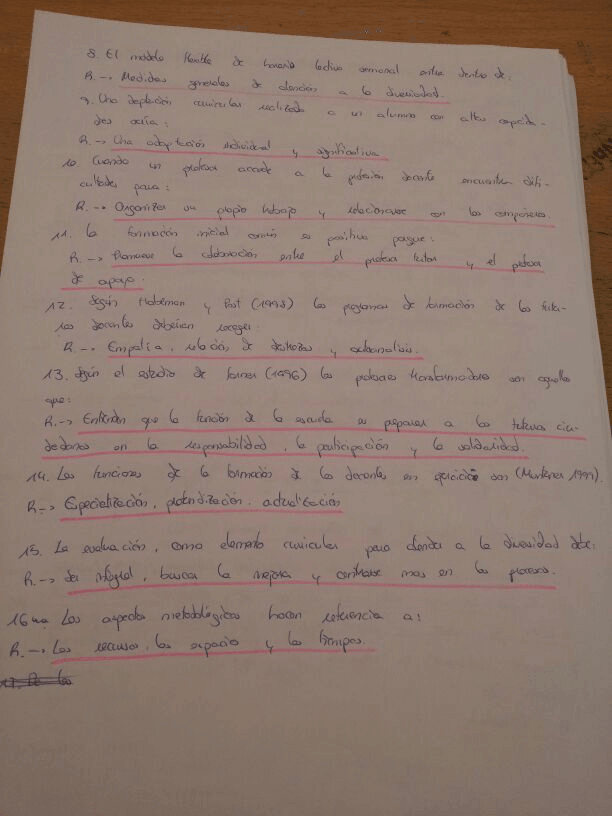 8. El modelo flexible de horario lectivo semanal entra dentro de:
R. → Medidas generales de atención a la diversidad.
9. Una adaptación curricular realizada a un alumno con altas capacida-
des sería:
R. → Una adaptación individual y significativa
10. Cuando un profesor accede a la profesión docente encuentra difi-
cultades para:
R. → Organizar su propio trabajo y relacionarse con los compañeros.
11. La formación inicial común es positiva porque:
R. → Promueve la colaboración entre el profesor tutor y el profesor
de apoyo.
12. Según y Post (1998) los programas de formación de los futu-
ros docentes deberían recoger:
R. → Empatía, relación de destrezas y autoanálisis.
13. Según el estudio de (1996) los profesores transformadores son aquellos
que:
R. → Entienden que la función de la escuela es preparar a los futuros ciu-
dadanos en la responsabilidad, la participación y la solidaridad.
14. Las funciones de la formación de los docentes en ejercicio son (1999).
R → Especialización, profundización, actualización
15. La evaluación, como elemento curricular para atender a la diversidad debe:
R. → Ser integral, buscar la mejora y centrarse mas en los procesos.
16 Los aspectos metodológicos hacen referencia a:
R. → Los recursos, los espacio y los tiempos.
17. De los